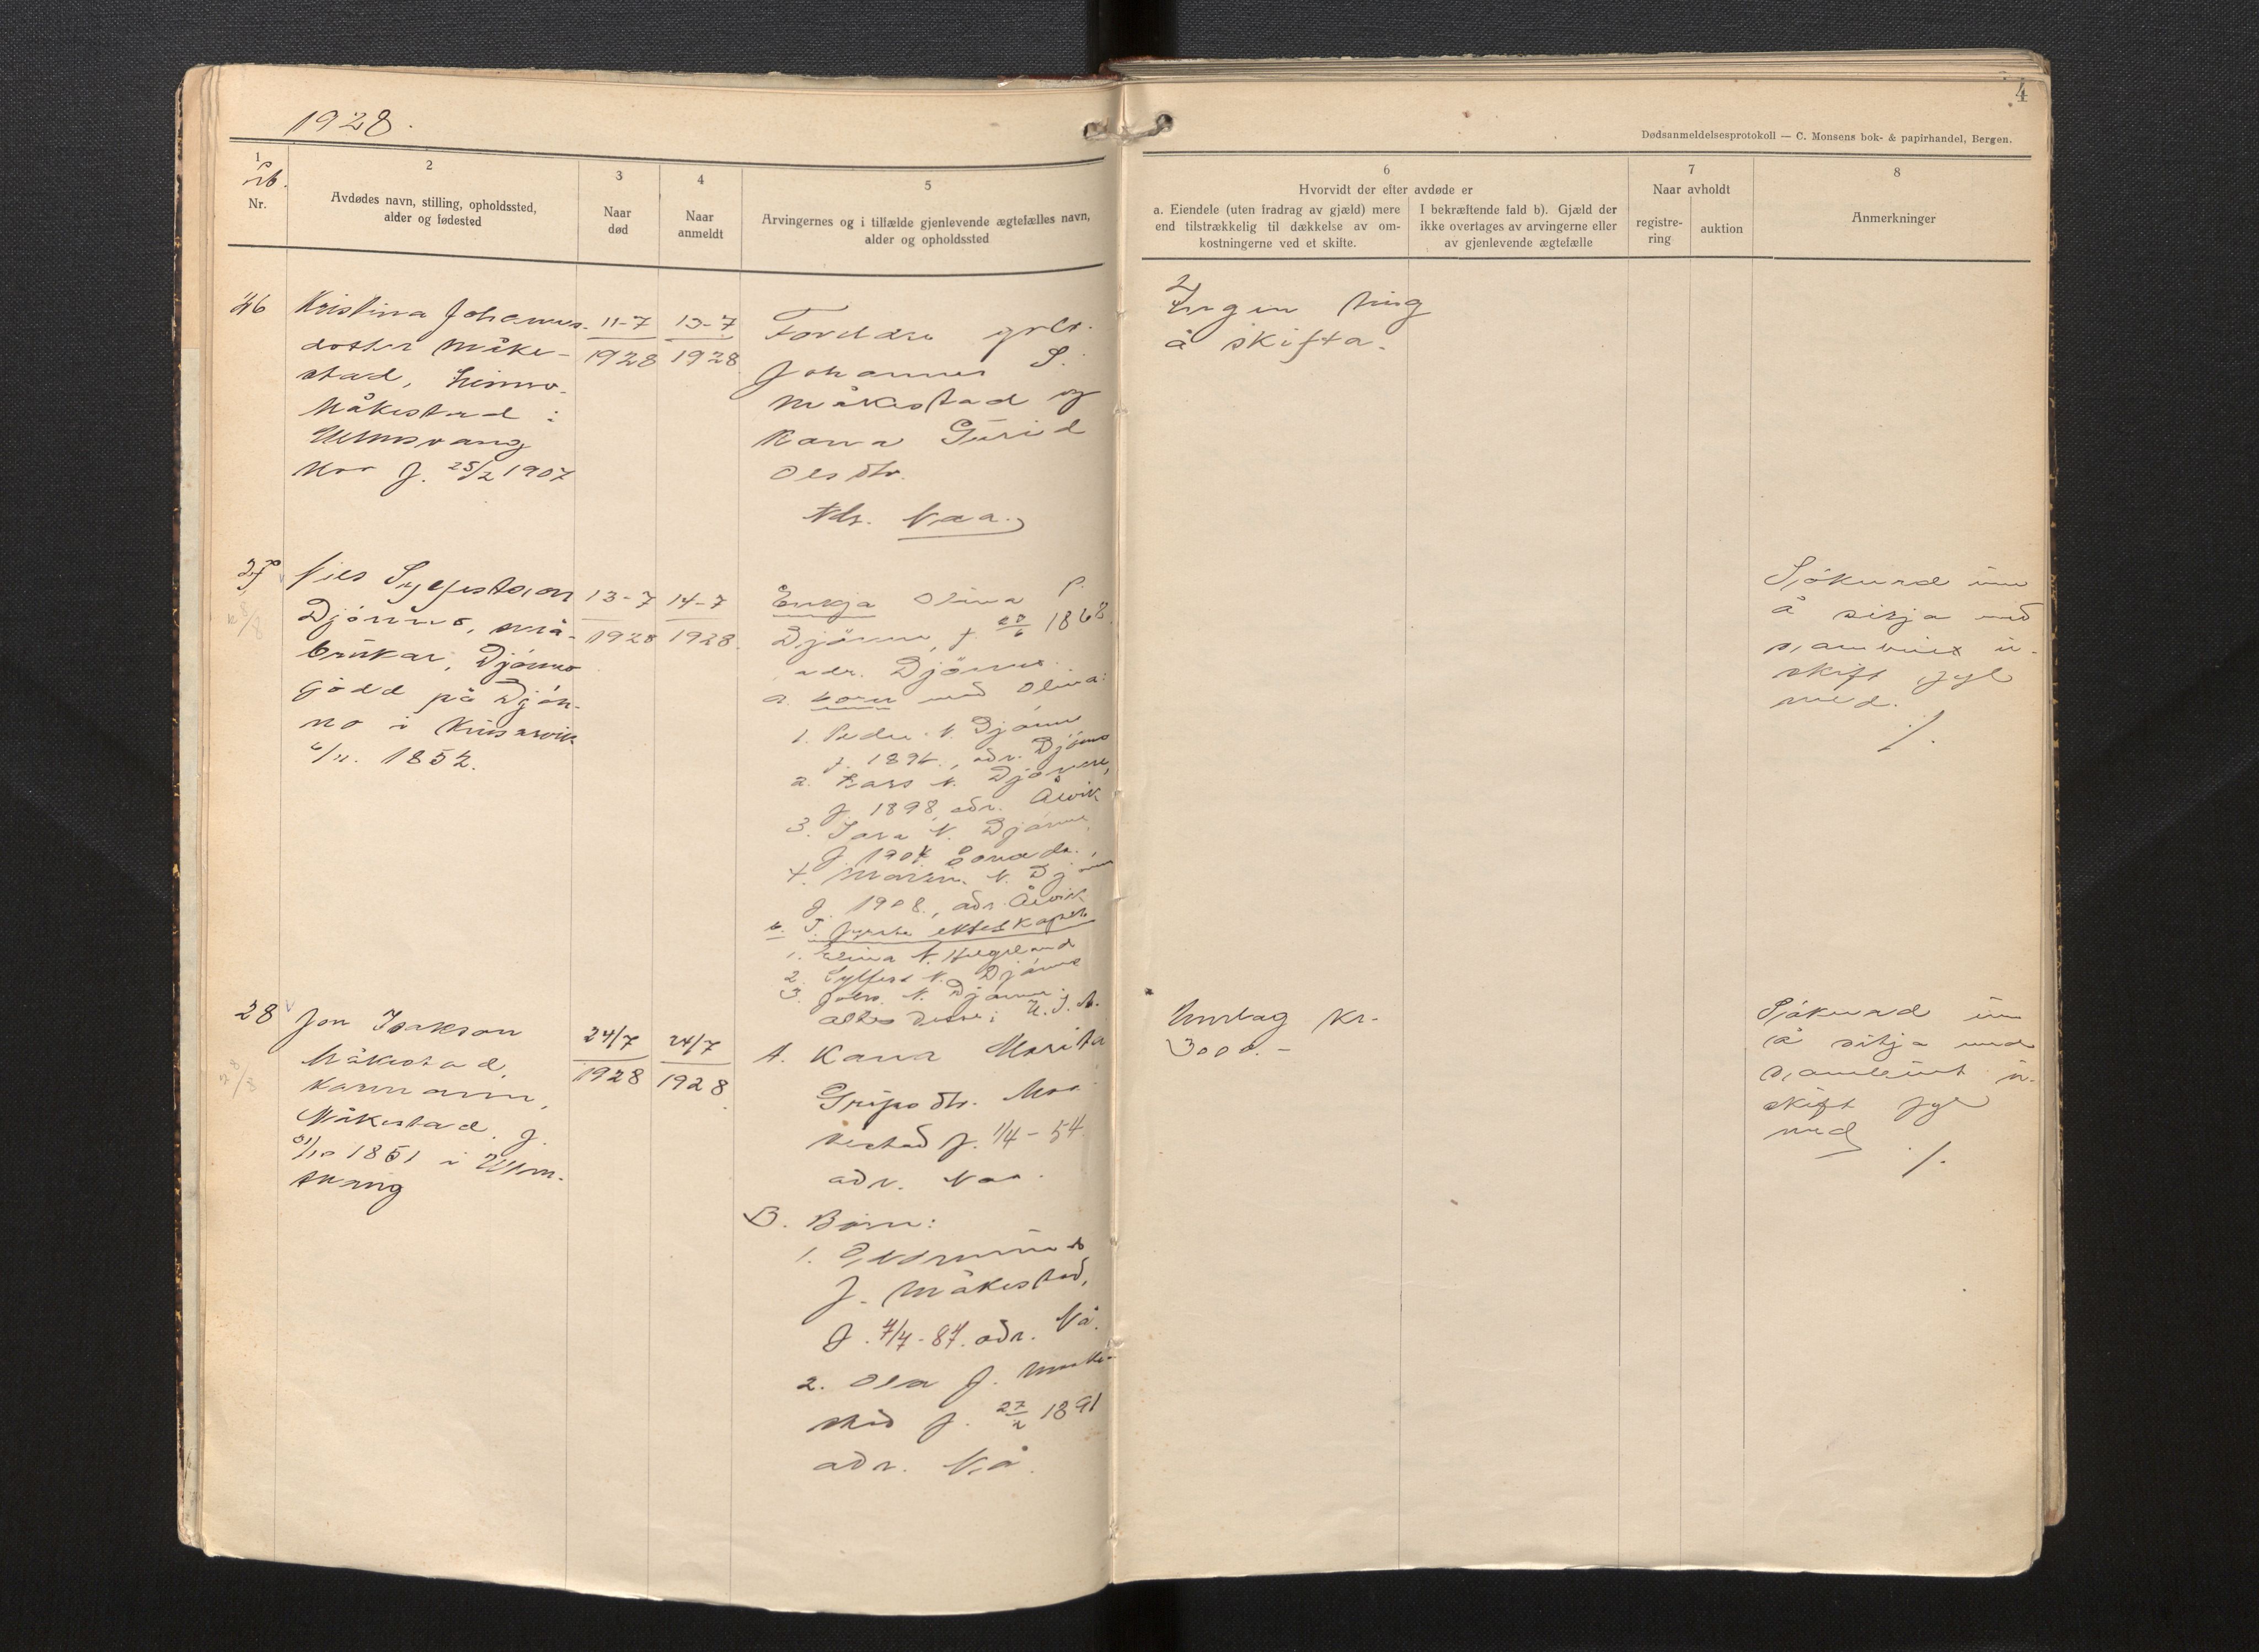 1928.
4
Dødsanmeldelsesprotokoll — C. Monsens bok- & papirhandel, Bergen.
1
Nr.
2
Avdødes navn, stilling, opholdssted,
alder og fødested
3
Naar
død
4
Naar
anmeldt
5
Arvingernes og i tilfælde gjenlevende ægtefælles navn,
alder og opholdssted
6
Hvorvidt der efter avdøde er
a. Eiendele (uten fradrag av gjæld) mere
end tilstrækkelig til dækkelse av om-
kostningerne ved et skifte.
I bekræftende fald b). Gjæld der
ikke overtages av arvingerne eller
av gjenlevende ægtefælle
7
Naar avholdt
registre-
ring
auktion
8
Anmerkninger
26
Kristina Johannes-
dotter Måke-
stad,
Måkestad i
Ullensvang
f. 25/2 1907
11-7
1928
13-7
1928
Foreldre
Johannes S.
Måkestad og
kona Gurid
Olsdtr.
Adr. Naa.
Ingen ting
å skifta.
27
Nils Syllfestson
Djönno, små-
brukar, Djönno
född på Djön-
no i Kinsarvik
6/11. 1852.
13-7
1928
14-7
1928
Enkja Olina P.
Djönno, f. 1868
adr. Djönno.
a. born med Olina:
1. Peder N. Djönno
f. 1896., adr. Djönno
2. Lars N. Djönno,
f. 1898, adr. Ålvik
3. N. Djönno,
f. 1904
4. N. Djönno
f. 1908., adr. Ålvik
b. I fyrste ekteskapet
1. N.
2. Syllfest N. Djönno
3. N. Djönno.
i U.S.A.
Söknad um
å sitja med
sameint u-
skift fyl
med.
/.
28
Jon Isakson
Måkestad
kårmann,
Måkestad. f.
31/10 1851 i Ullen-
svang
24/7
1928
24/7
1928
A. Kona Marita
Gripsdtr. Måa-
kestad f. 1/4 - 54.
adr. Naa.
B. Born:
1. Gudmund
J. Måkestad,
f. 7/4 - 87. adr. Nå.
2. Ola J. Måke-
stad f. 1891
adr. Nå.
Umlag kr.
3000.-
Söknad um
å sitja med
sameint u-
skift fyl
med
/.